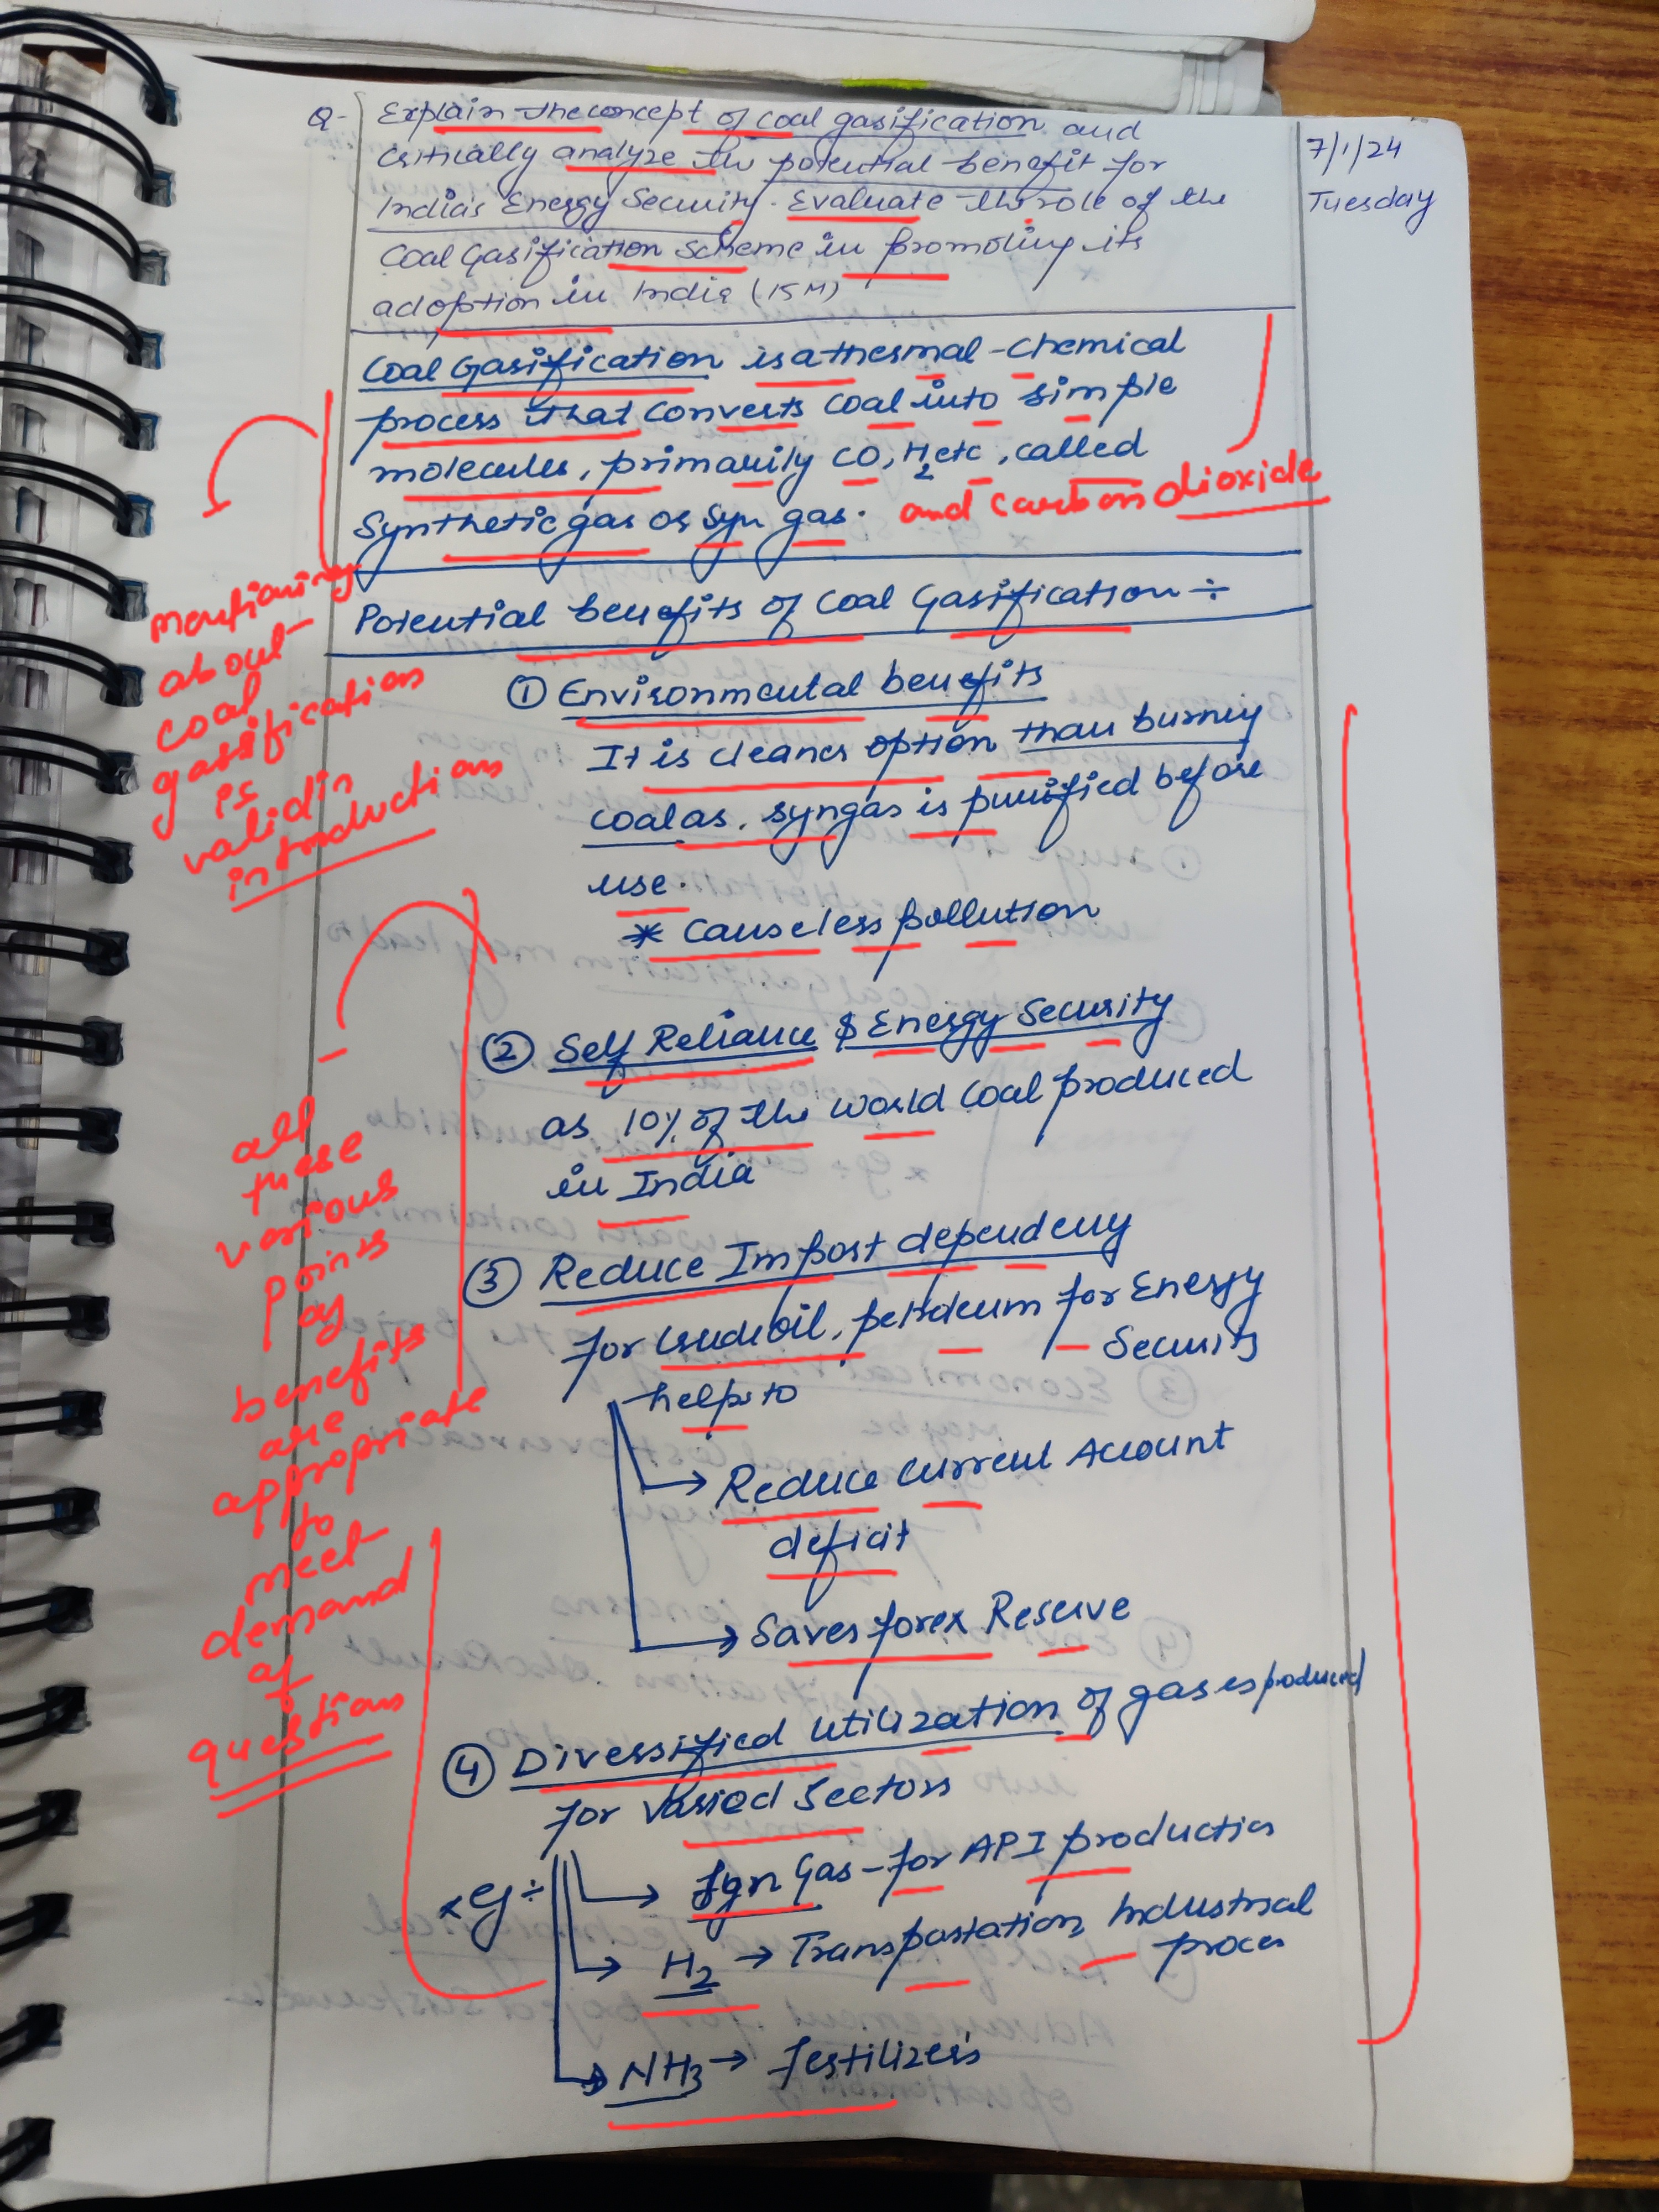 Q- Explain the concept of coal gasification and
critically analyze the potential benefit for
India's Energy Security. Evaluate the role of the
Coal Gasification Scheme in promoting its
adoption in India (15M)
7/1/24
Tuesday
Coal Gasification is a thermal-chemical
process that converts coal into simple
molecules, primarily CO, H2 etc, called
Synthetic gas or Syn gas. and carbon dioxide
mentioning
about
coal
gasification
is
valid in
introductions
Potential benefits of Coal Gasification ÷
① Environmental benefits
It is cleaner option than burning
coal as, syngas is purified before
use.
* Cause less pollution
② Self Reliance & Energy Security
as 10% of the world coal produced
in India
③ Reduce Import dependency
for crude oil, petroleum for Energy
Security
helps to
→ Reduce current Account
deficit
→ Saves forex Reserve
all
these
various
points
as
benefits
are
appropriate
to
meet
demand
of
questions
④ Diversified utilization of gases produced
for varied Sectors
* eg ÷
→ Syn Gas - for API production
→ H2 → Transportation, Industrial
proces
→ NH3 → fertilizers